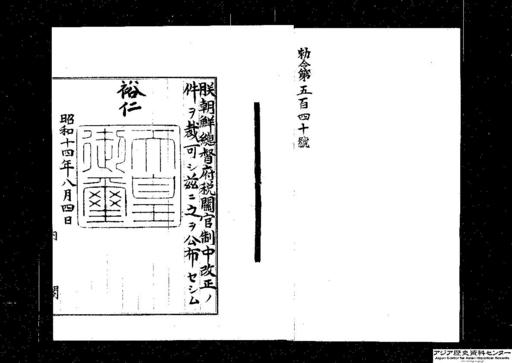 勅令第五百四十號
朕朝鮮總督府税關官制中改正ノ
件ヲ裁可シ茲ニ之ヲ公布セシム
裕仁
天皇
御璽
昭和十四年八月四日
内閣
アジア歴史資料センター
Japan Center for Asian Historical Records